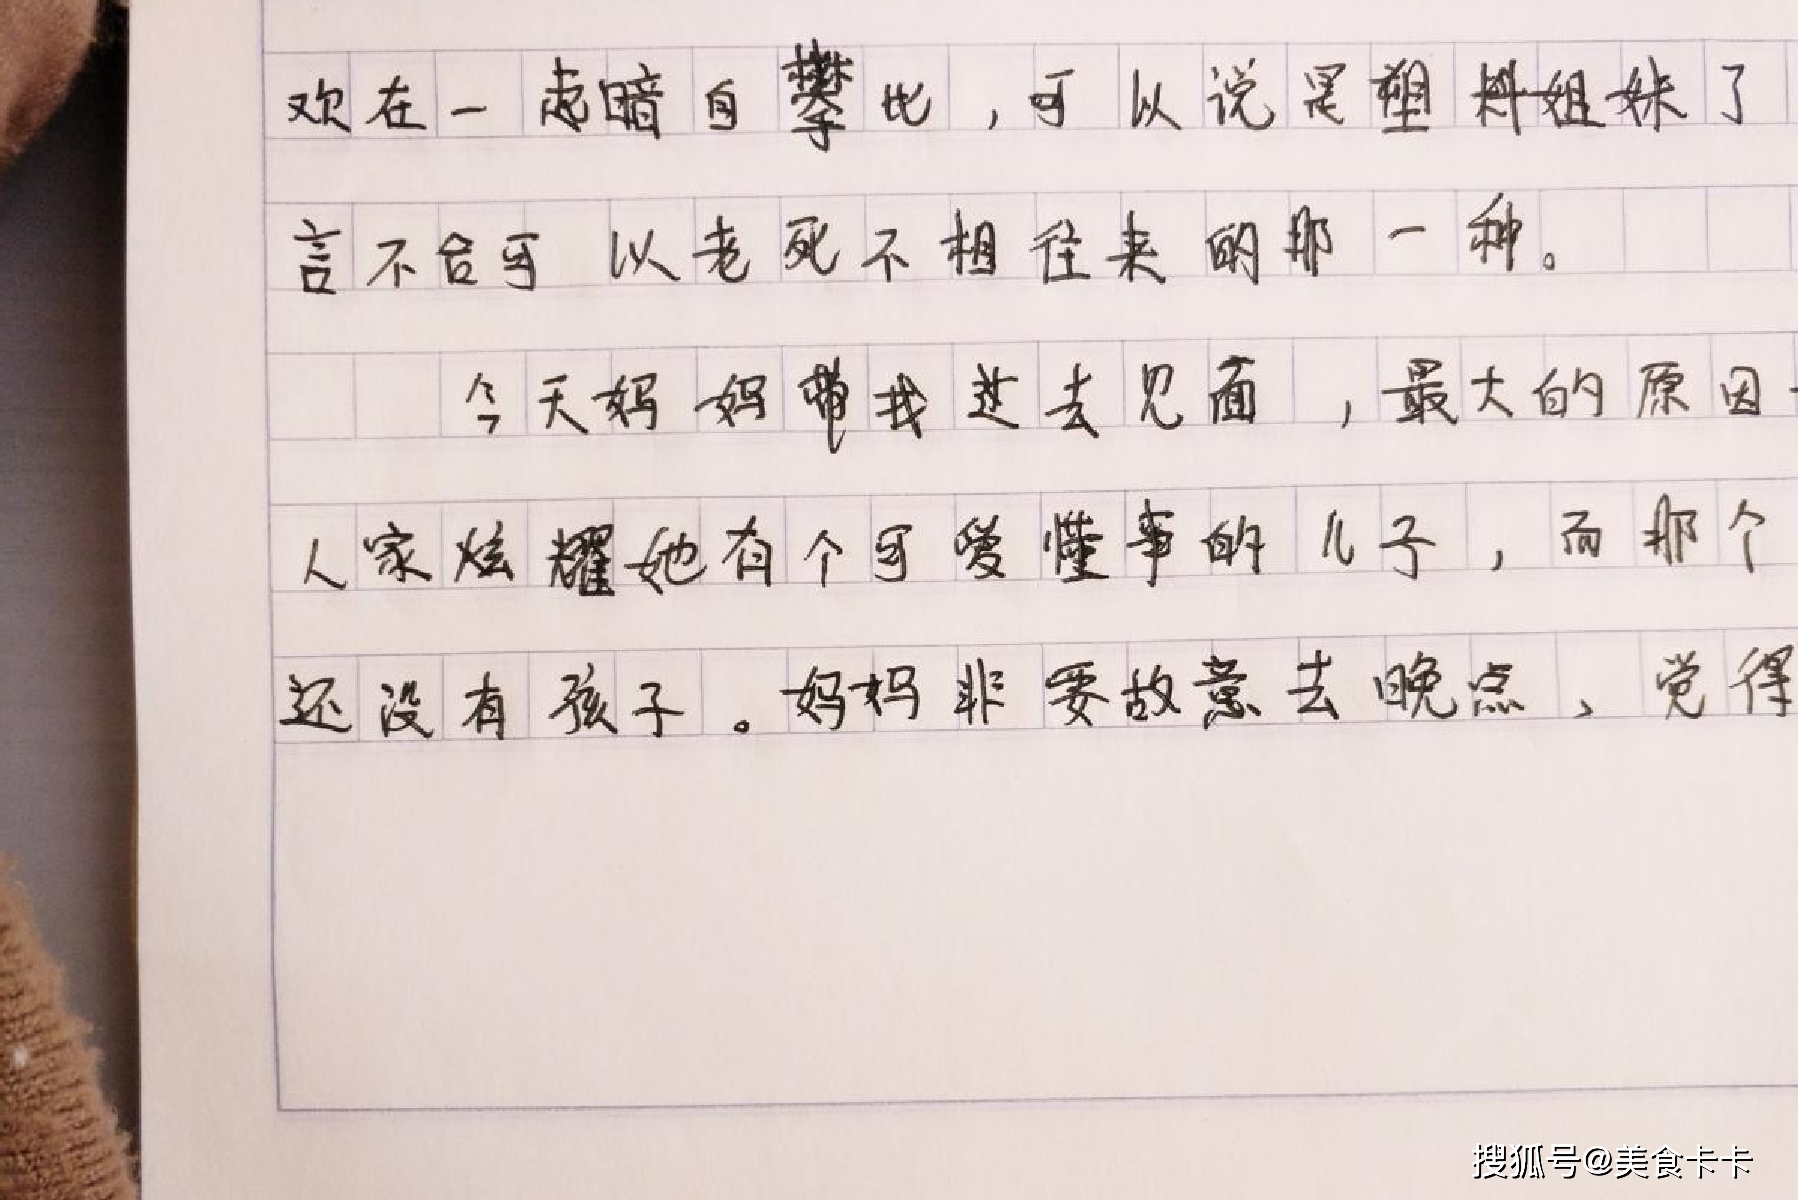 欢在一起暗自攀比，可以说是塑料姐妹了
言不合可以老死不相往来的那一种。
今天妈妈带我过去见面，最大的原因
人家炫耀她有个可爱懂事的儿子，而那个
还没有孩子。妈妈非要故意去晚点、觉得
搜狐号@美食卡卡